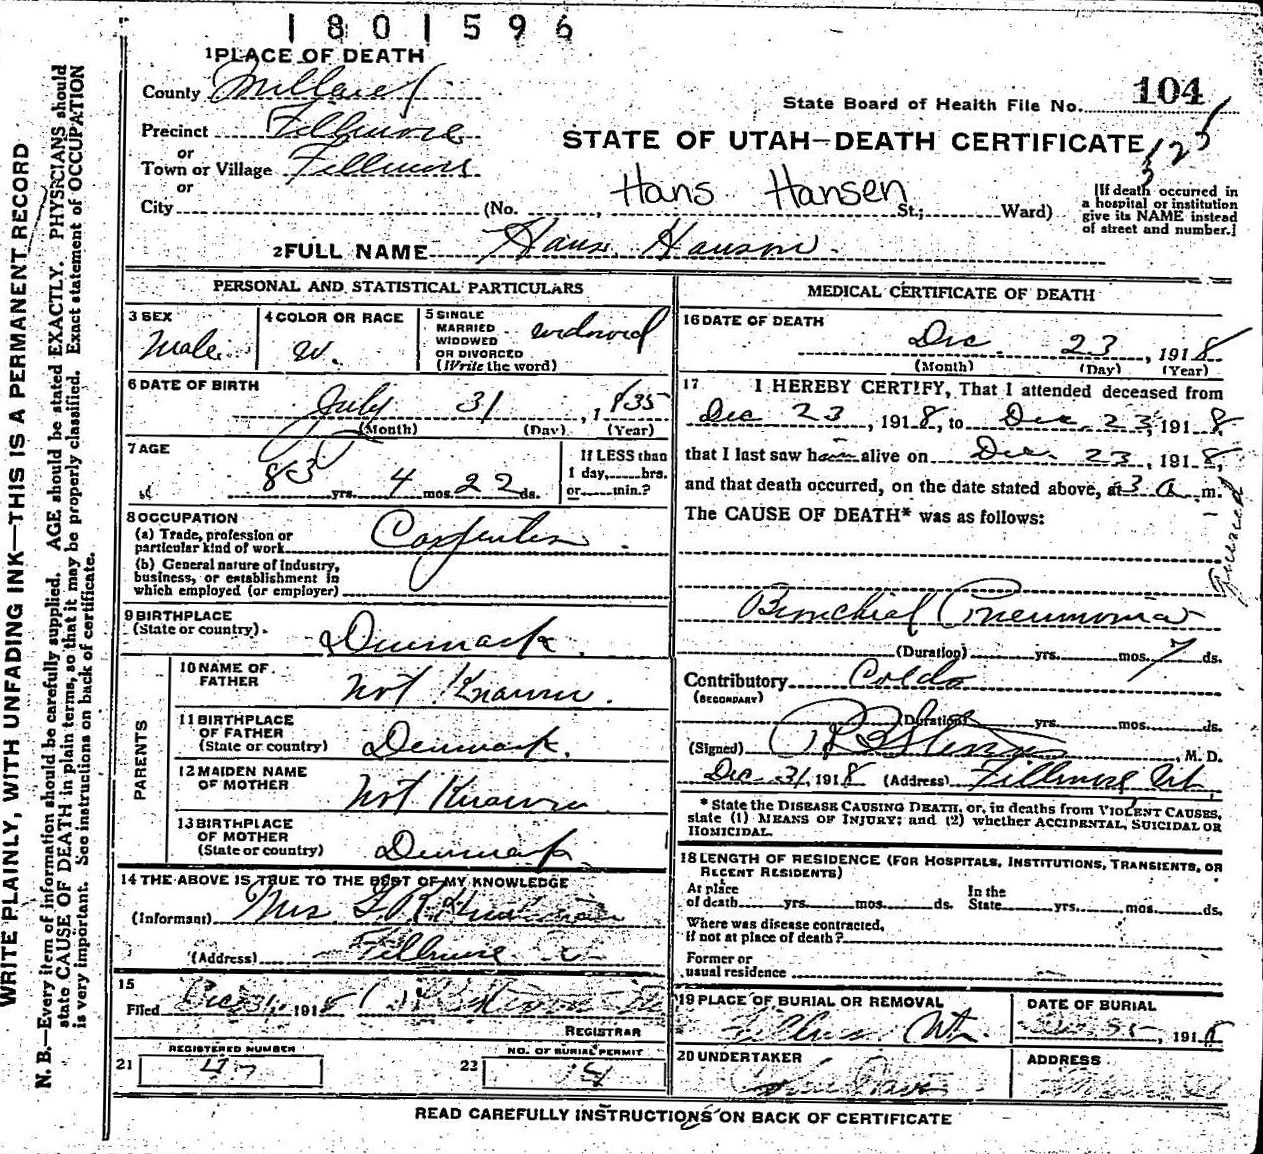 1801596
1 PLACE OF DEATH
County Millard
State Board of Health File No. 104
Precinct Fillmore
STATE OF UTAH—DEATH CERTIFICATE
or
Town or Village Fillmore
or
City (No. , Hans Hansen St.; Ward)
[If death occurred in
a hospital or institution
give its NAME instead
of street and number.]
2 FULL NAME Hans Hanson.
PERSONAL AND STATISTICAL PARTICULARS
3 SEX
Male
4 COLOR OR RACE
W.
5 SINGLE
MARRIED
WIDOWED
OR DIVORCED
(Write the word)
widowed
6 DATE OF BIRTH
July 31, 1835
(Month) (Day) (Year)
7 AGE
83 yrs. 4 mos. 22 ds.
If LESS than
1 day, hrs.
or min.?
8 OCCUPATION
(a) Trade, profession or
particular kind of work Carpenter
(b) General nature of Industry,
business, or establishment in
which employed (or employer)
9 BIRTHPLACE
(State or country) Denmark.
PARENTS
10 NAME OF
FATHER
Not Known.
11 BIRTHPLACE
OF FATHER
(State or country) Denmark.
12 MAIDEN NAME
OF MOTHER
Not Known
13 BIRTHPLACE
OF MOTHER
(State or country) Denmark
14 THE ABOVE IS TRUE TO THE BEST OF MY KNOWLEDGE
(Informant) Mrs
(Address) Fillmore
15
Filed Dec 31, 1918
REGISTRAR
REGISTERED NUMBER
21
NO. OF BURIAL PERMIT
23
MEDICAL CERTIFICATE OF DEATH
16 DATE OF DEATH
Dec. 23, 1918
(Month) (Day) (Year)
17 I HEREBY CERTIFY, That I attended deceased from
Dec 23, 1918, to Dec. 23, 1918
that I last saw him alive on Dec. 23, 1918,
and that death occurred, on the date stated above, at 3 a m.
The CAUSE OF DEATH* was as follows:
Bronchial Pneumonia
(Duration) yrs. mos. 7 ds.
Contributory Colds
(SECONDARY)
(Duration) yrs. mos. ds.
(Signed) Stevens, M. D.
Dec 31, 1918 (Address) Fillmore, Ut.
* State the DISEASE CAUSING DEATH, or, in deaths from VIOLENT CAUSES,
state (1) MEANS OF INJURY; and (2) whether ACCIDENTAL, SUICIDAL OR
HOMICIDAL.
18 LENGTH OF RESIDENCE (FOR HOSPITALS, INSTITUTIONS, TRANSIENTS, OR
RECENT RESIDENTS)
At place
of death yrs. mos. ds.
In the
State yrs. mos. ds.
Where was disease contracted,
if not at place of death?
Former or
usual residence
19 PLACE OF BURIAL OR REMOVAL
Ut.
DATE OF BURIAL
, 1918
20 UNDERTAKER
ADDRESS
READ CAREFULLY INSTRUCTIONS ON BACK OF CERTIFICATE
WRITE PLAINLY, WITH UNFADING INK—THIS IS A PERMANENT RECORD
N. B.—Every item of information should be carefully supplied. AGE should be stated EXACTLY. PHYSICIANS should
state CAUSE OF DEATH in plain terms, so that it may be properly classified. Exact statement of OCCUPATION
is very important. See instructions on back of certificate.